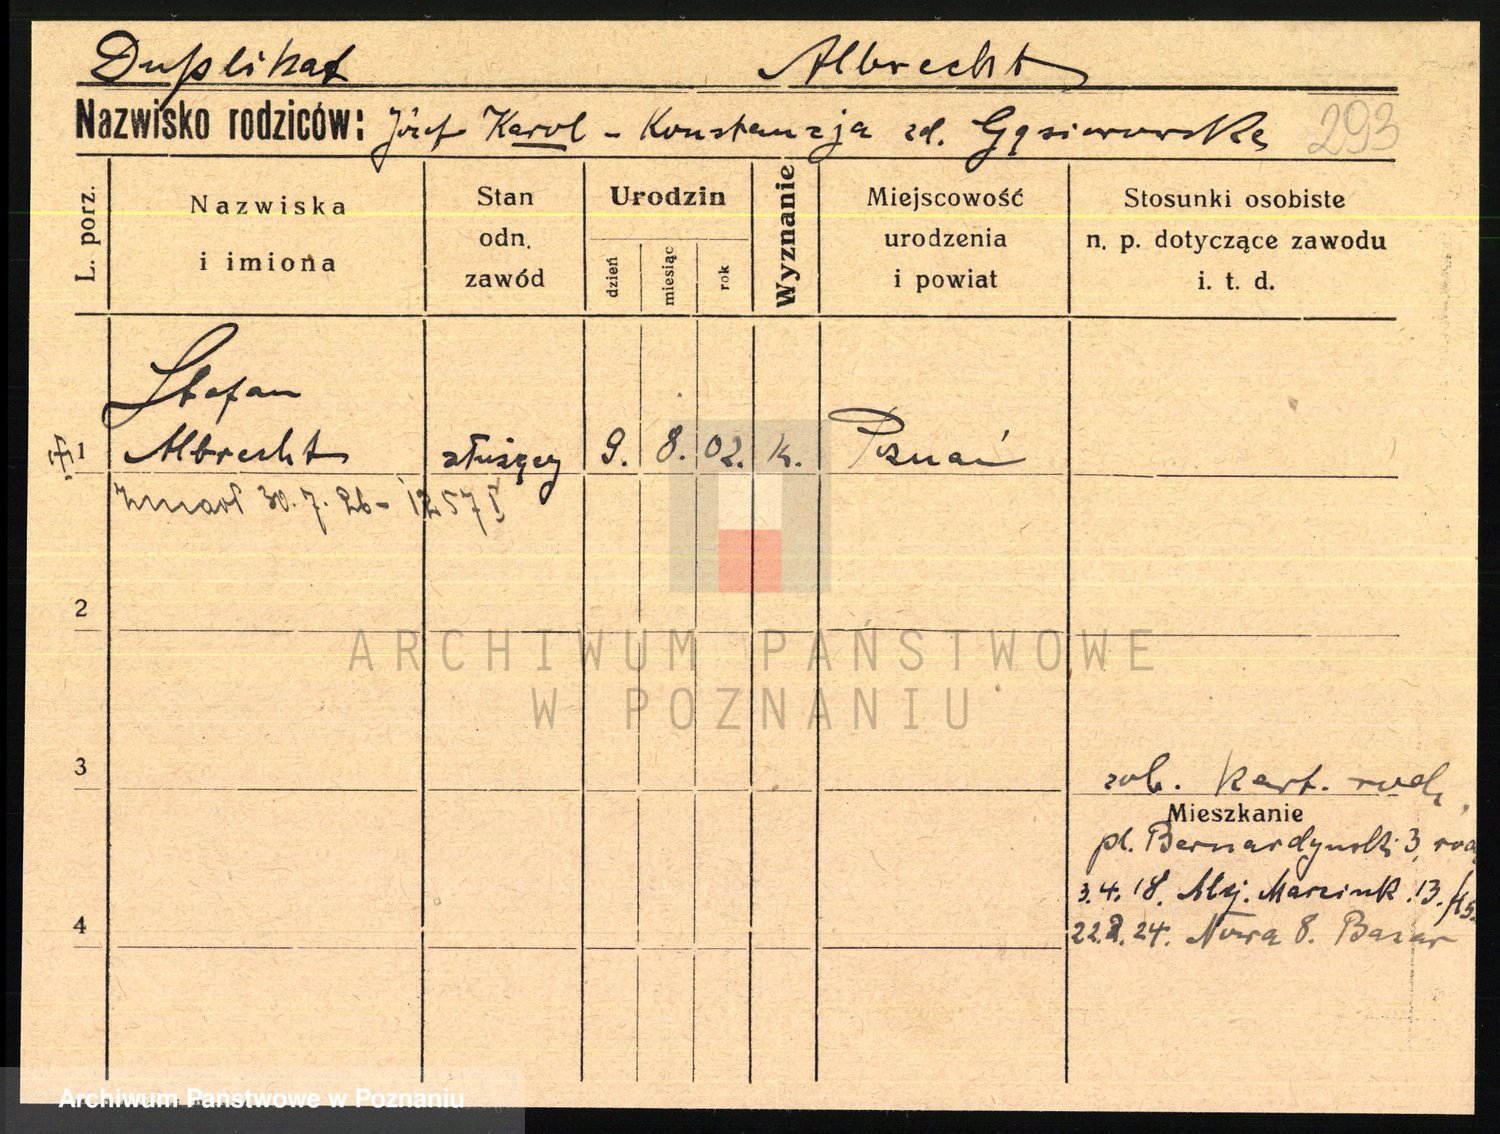 Duplikat Albrecht
Nazwisko rodziców: Józef Karol - Konstancja zd. Gąsiorowska 293
L. porz.
Nazwiska
i imiona
Stan
odn.
zawód
Urodzin
dzień
miesiąc
rok
Wyznanie
Miejscowość
urodzenia
i powiat
Stosunki osobiste
n. p. dotyczące zawodu
i. t. d.
Stefan
1 Albrecht służący 9. 8. 02. k. Poznań
Zmarł 30.7.26 - 1257 I
2
ARCHIWUM PAŃSTWOWE
W POZNANIU
3
zob. kart. rodz.
Mieszkanie
pl. Bernardyński 3
3.4.18. Alej. Marcink. 13.
4
22.2.24. Nowa 8. Bazar
Archiwum Państwowe w Poznaniu